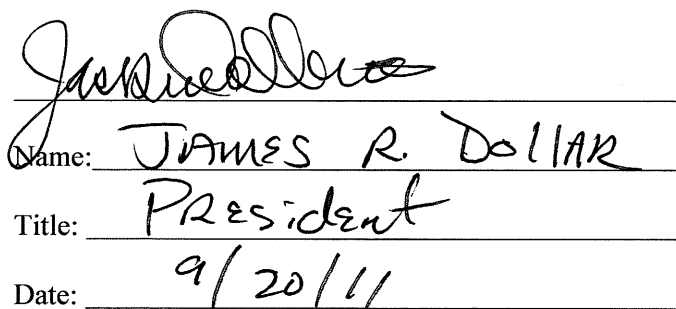 Name: JAMES R. DollAR
Title: PResident
Date: 9/20/11